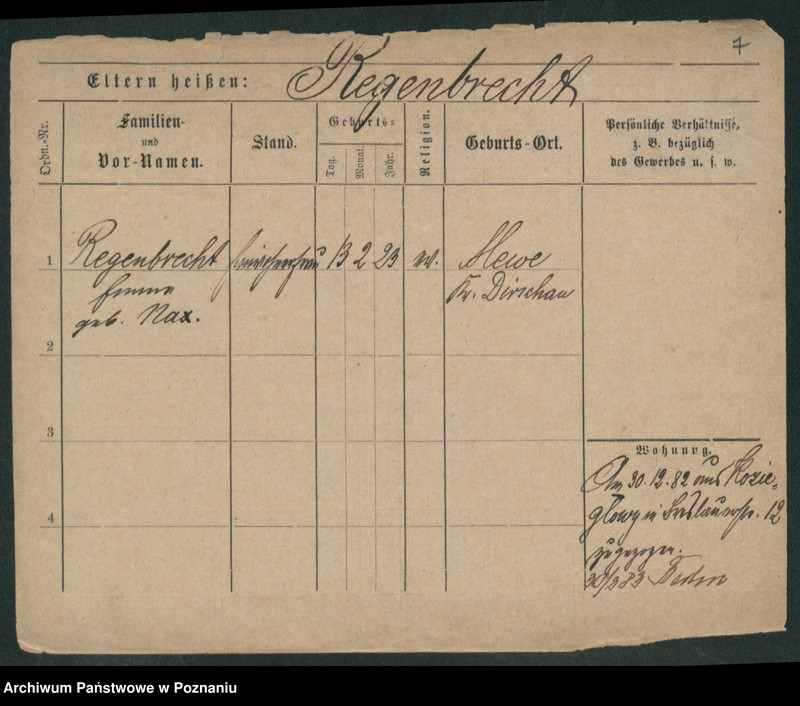 7
Eltern heißen: Regenbrecht
Ordn.-Nr.
Familien-
und
Vor-Namen.
Stand.
Geburts-
Tag.
Monat.
Jahr.
Religion.
Geburts-Ort.
Persönliche Verhältnisse,
z. B. bezüglich
des Gewerbes u. s. w.
1 Regenbrecht 13 2 23 Mewe
Emma Kr. Dirschau
geb. Nax.
2
3
Wohnung.
Am 30.12.82 aus Kozie-
glowy in Breslauerstr. 12
4
zugezogen.
30/3 83 Berlin
Archiwum Państwowe w Poznaniu